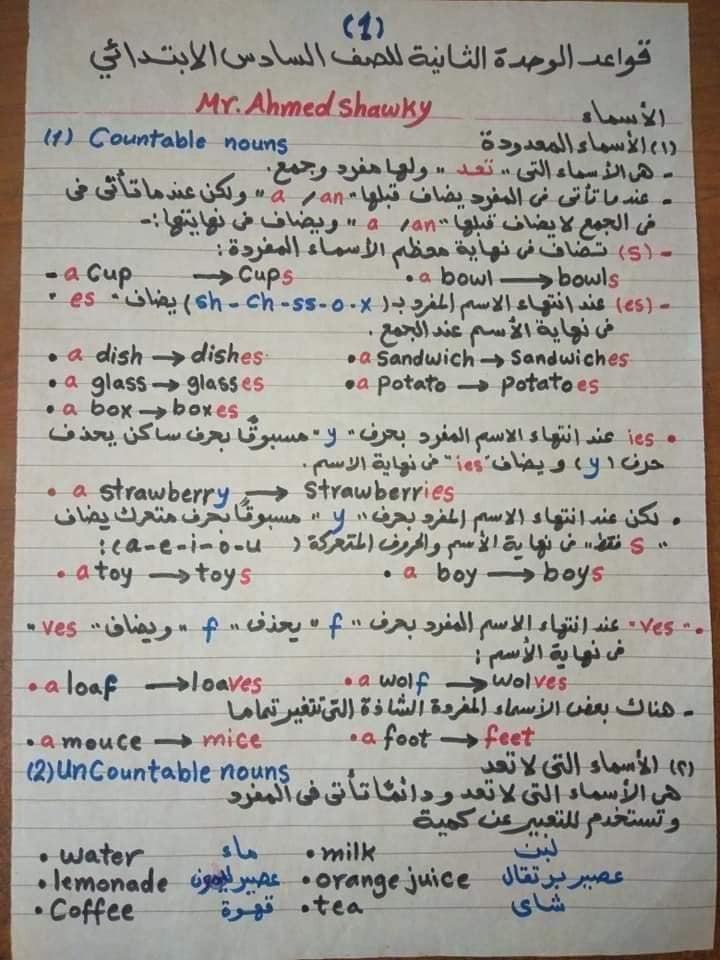 (1)
قواعد الوحدة الثانية للصف السادس الابتدائي
Mr. Ahmed Shawky
الأسماء
(١) الأسماء المعدودة (1) Countable nouns
- هى الأسماء التى "تعد" ولها مفرد وجمع.
- عندما تأتى فى المفرد يضاف قبلها "a / an" ولكن عندما تأتى فى
فى الجمع لا يضاف قبلها "a / an" ويضاف فى نهايتها:-
- (s) تضاف فى نهاية معظم الأسماء المفردة:
- a cup → cups • a bowl → bowls
- (es) عند انتهاء الاسم المفرد بـ (sh - ch - ss - o - x) يضاف "es"
فى نهاية الأسم عند الجمع.
• a dish → dishes • a sandwich → sandwiches
• a glass → glasses • a potato → potatoes
• a box → boxes
• ies عند انتهاء الاسم المفرد بحرف "y" مسبوقًا بحرف ساكن يحذف
حرف (y) ويضاف "ies" فى نهاية الاسم.
• a strawberry → strawberries
• لكن عند انتهاء الاسم المفرد بحرف "y" مسبوقًا بحرف متحرك يضاف
"s فقط" فى نهاية الأسم والحروف المتحركة (a-e-i-o-u):
• a toy → toys • a boy → boys
• "ves" عند انتهاء الاسم المفرد بحرف "f" يحذف "f" ويضاف "ves"
فى نهاية الأسم:
• a loaf → loaves • a wolf → wolves
- هناك بعض الأسماء المفردة الشاذة التى تتغير تماما
• a mouce → mice • a foot → feet
(٢) الأسماء التى لا تعد (2) UnCountable nouns
هى الأسماء التى لا تعد ودائمًا تأتى فى المفرد
وتستخدم للتعبير عن كمية
• water ماء • milk لبن
• lemonade عصير ليمون • orange juice عصير برتقال
• Coffee قهوة • tea شاى